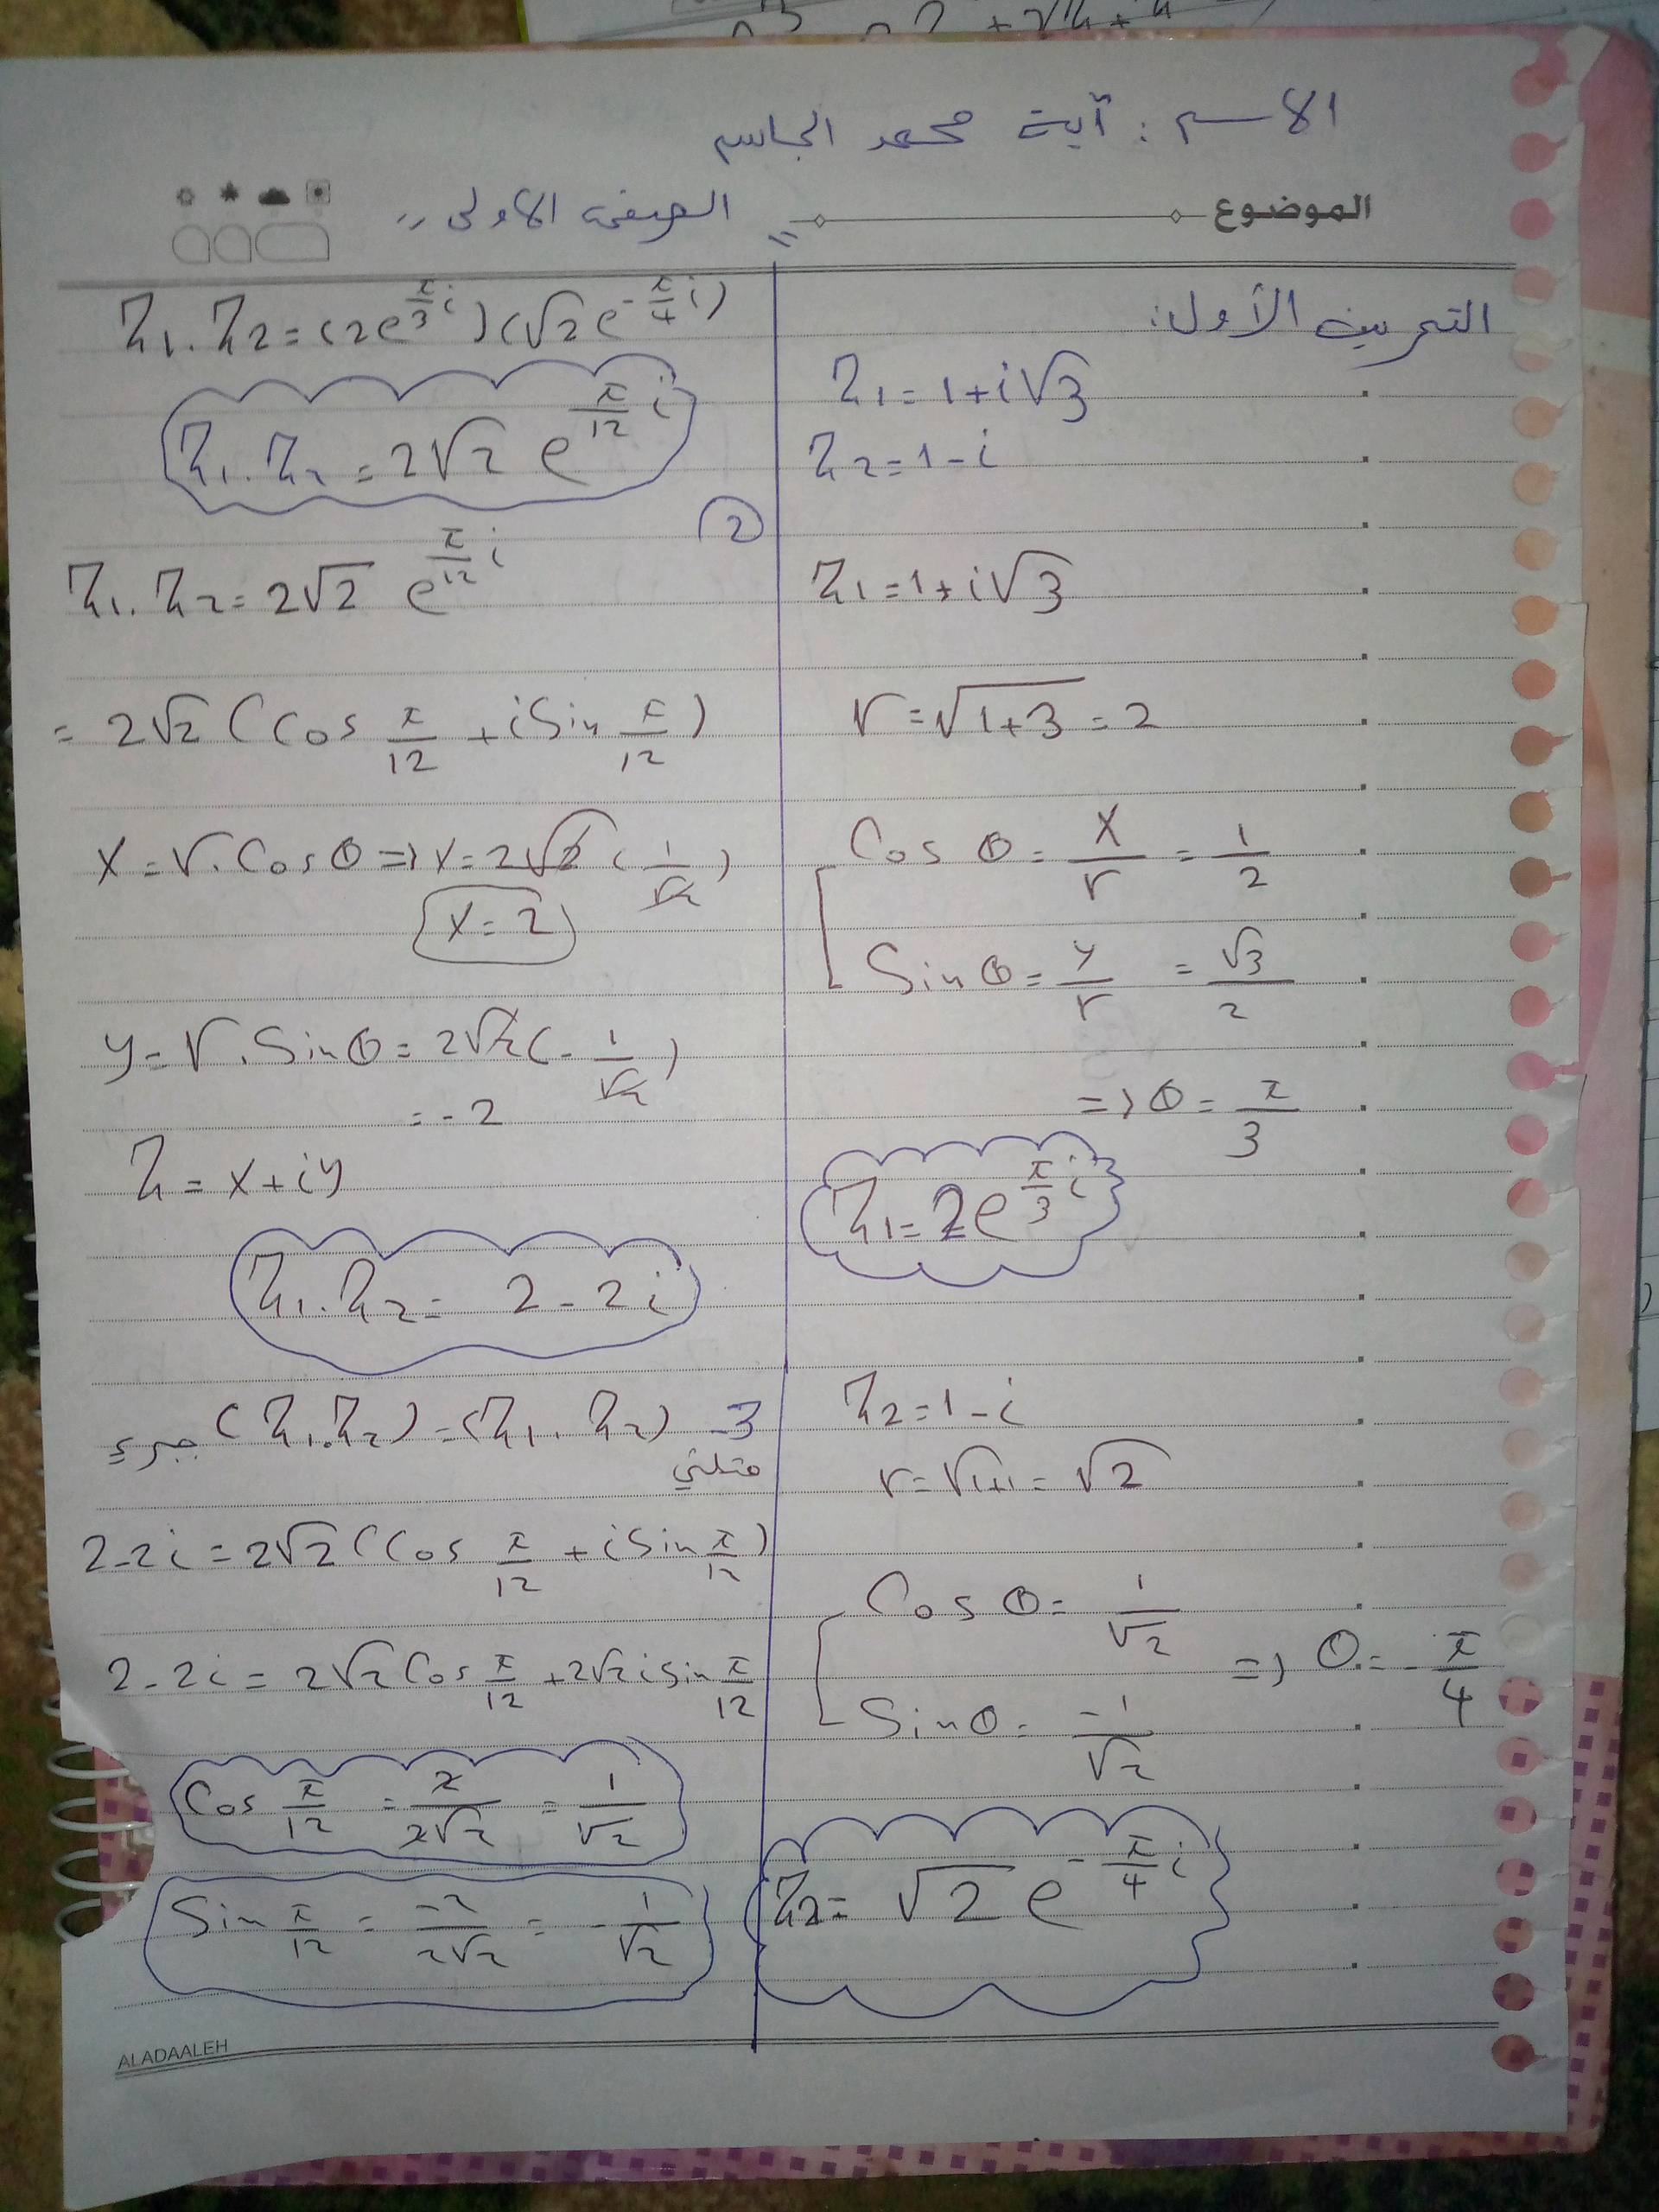 الاسم : آية محمد الجاسم
الموضوع
الصفحة الاولى ,,
التمرين الأول:
Z1 = 1+i√3
Z2 = 1-i
Z1 = 1+i√3
r = √(1+3) = 2
Cos θ = x/r = 1/2
Sin θ = y/r = √3/2
=> θ = π/3
Z1 = 2e^(π/3 i)
Z2 = 1-i
r = √(1+1) = √2
Cos θ = 1/√2
=> θ = -π/4
Sin θ = -1/√2
Z2 = √2 e^(-π/4 i)
Z1 . Z2 = (2e^(π/3 i)) (√2 e^(-π/4 i))
Z1 . Z2 = 2√2 e^(π/12 i)
2
Z1 . Z2 = 2√2 e^(π/12 i)
= 2√2 (Cos π/12 + i Sin π/12)
x = r . Cos θ => x = 2√2 (1/√2)
x = 2
y = r . Sin θ = 2√2 (-1/√2)
= -2
Z = x+iy
Z1 . Z2 = 2 - 2i
3- (Z1 . Z2) = (Z1 . Z2) جبري
مثلثي
2-2i = 2√2 (Cos π/12 + i Sin π/12)
2-2i = 2√2 Cos π/12 + 2√2 i Sin π/12
Cos π/12 = 2/2√2 = 1/√2
Sin π/12 = -2/2√2 = -1/√2
ALADAALEH